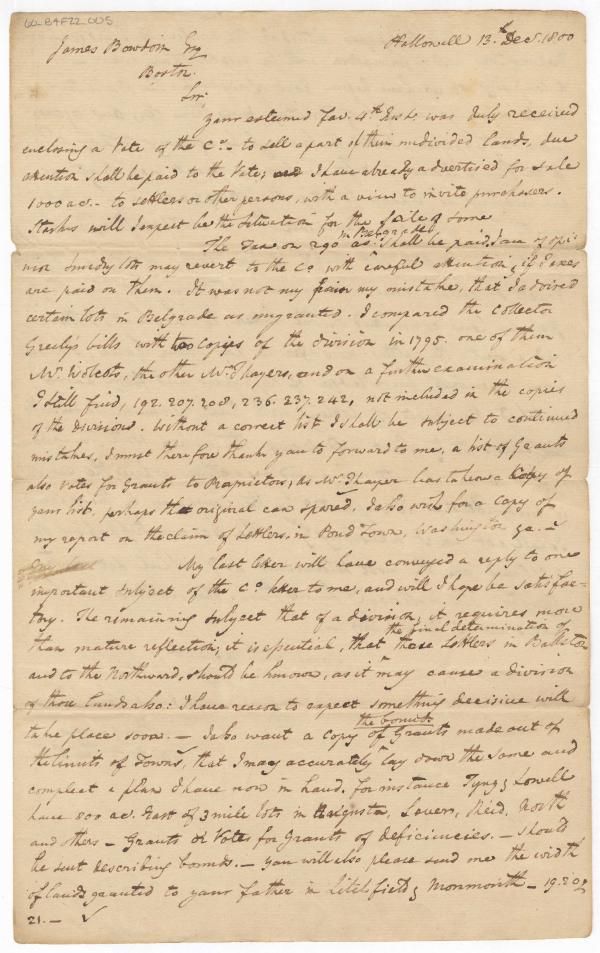 60-B4F22-005
James Bowdoin Esq Hallowell 13.th Dec.r 1800
Boston
Sir,
Your esteemed fav. 4th Inst. was duly received
enclosing a Vote of the Co. to sell a part of their undivided lands, due
attention shall be paid to the Vote; I have already advertised for sale
1000 ac.- to settlers or other persons, with a view to invite purchasers.
Starks will I expect be the Situation for the Sale of some
The Tax on 290 as. in Belgrade shall be paid,
nor lots may revert to the Co. with careful attention, if Taxes
are paid on them. It was not my mistake, that I advised
certain lots in Belgrade as ungranted. I compared the Collector
Greely's bills with two Copies of the division in 1795. one of them
Mr. Wolcots, the other Mr. Thayers, and on a further examination
I still find, 192. 207. 208, 236. 237. 242, not included in the copies
of the divisions. Without a correct list I shall be subject to continued
mistakes, I must therefore thank you to forward to me, a list of Grants
also Votes for Grants to Proprietors, as Mr. Thayer has taken a Copy of
your list, perhaps the original can spared, I also wish for a Copy of
my report on the claim of Settlers, in Pond Town, Washington &a. -
My last letter will have conveyed a reply to one
important subject of the Co. letter to me, and will I hope be satisfac=
tory. The remaining subject that of a division, it requires more
than mature reflection; it is essential, that the final determination of those Settlers in Ballstown
and to the Northward, should be known, as it may cause a division
of those lands also: I have reason to expect something decisive will
take place soon. - I also want a Copy of the bounds of Grants made out of
the limits of Towns, that I may accurately lay down the same and
compleat a plan I have now in hand. for instance Tyng & Lowell
have 800 ac. East of 3 mile lots in Augusta, Severn, Reid, North
and others - Grants or Votes for Grants of deficiencies. - should
be sent describing bounds. - you will also please send me the width
of lands granted to your father in Litchfield & Monmouth - 19. 20 &
21. -